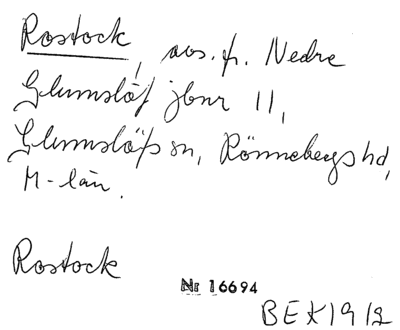 Rostock, avs. fr. Nedre
Glumslöf jbnr 11,
Glumslöfs sn, Rönnebergs hd,
M-län.
Rostock
Nr 16694
BEK 1912